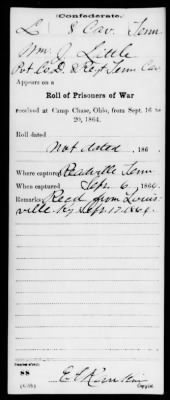 Confederate.
L 8 Cav. Tenn.
Wm. J. Little
Pvt Co. D. 8 Regt Tenn Cav
Appears on a
Roll of Prisoners of War
received at Camp Chase, Ohio, from Sept. 16 to
20, 1864.
Roll dated
Not dated, 186 .
Where captured Readville Tenn
When captured Sept. 6, 1864.
Remarks: Recd from Louis-
ville Ky Sept. 17. 1864.
Number of roll:
88
Copyist.